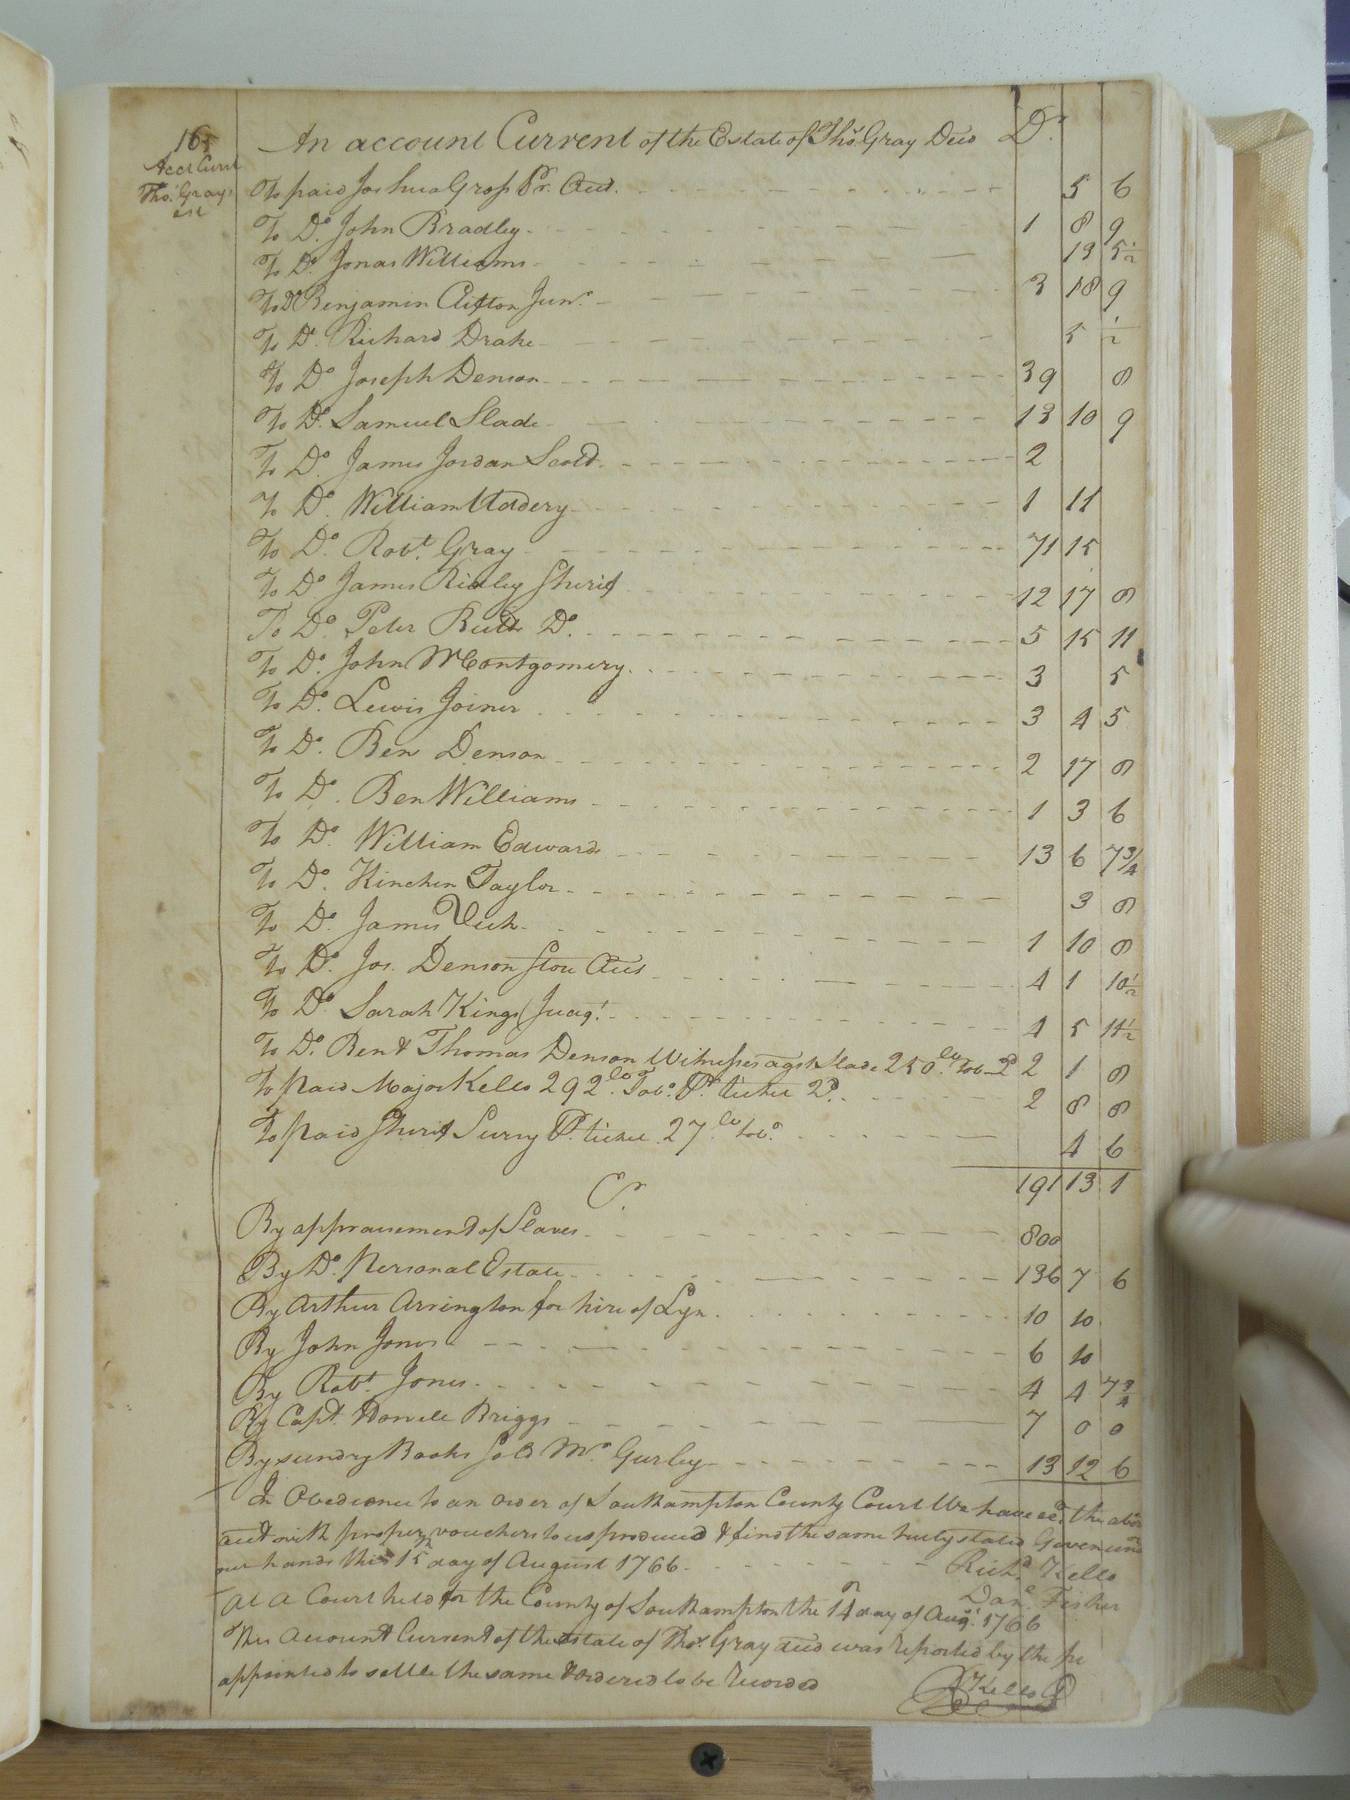 165
Acct Curt
Tho.s Grays
est
An account Current of the Estate of Tho.s Gray Decd Dr.
To paid Joshua Gross Pr. Acct. 5 6
To Do. John Bradley 1 8 9
To Do. Jonas Williams 13 5 1/2
To Do Benjamin Clifton Junr. 3 18 9
To Do. Richard Drake 5 1/2
To Do Joseph Denson 39 8
To Do. Samuel Slade 13 10 9
To Do. James Jordan Scott 2
To Do. William Vadery 1 11
To Do. Robt. Gray 71 15
To Do James Ridley Sherif 12 17 8
To Do. Peter Butts Do. 5 15 11
To Do. John McContgomery 3 5
To Do. Lewis Joiner 3 4 5
To Do. Ben Denson 2 17 8
To Do. Ben Williams 1 3 6
To Do. William Edwards 13 6 7 3/4
To Do. Kinchen Taylor 3 8
To Do. James Vick 1 10 8
To Do. Jos. Denson Stou Acct 4 1 10 1/2
To Do. Sarah Kings Juag.t 4 5 11 1/2
To Do. Ben & Thomas Denson Witnesses agst Slade 250 lb. tob 2d 2 1 8
To paid Major Kello 292 lb. Tobo. Pr. ticket 2d. 2 8 8
To paid Sherif Surry Pr. ticket 27 lb tobo. 4 6
191 13 1
Cr.
By appraisement of Slaves 800
By Do. Personal Estate 136 7 6
By Arthur Arrington for hire of Lyn 10 10
By John Jones 6 10
By Robt. Jones 4 4 7 3/4
By Capt. Howell Briggs 7 0 0
By sundry Books sold Mr. Gurley 13 12 6
In Obedience to an order of Southampton County Court We have ed. the above
acct with proper vouchers to us produced & find the same truly stated Given und
our hands this 15th day of August 1766
Richd. Kello
Danl. Fisher
At a Court held for the County of Southampton the 14th day of Augt. 1766
This Account Current of the Estate of Thos. Gray decd was reported by the pe
appointed to settle the same & ordered to be Recorded
R Kello